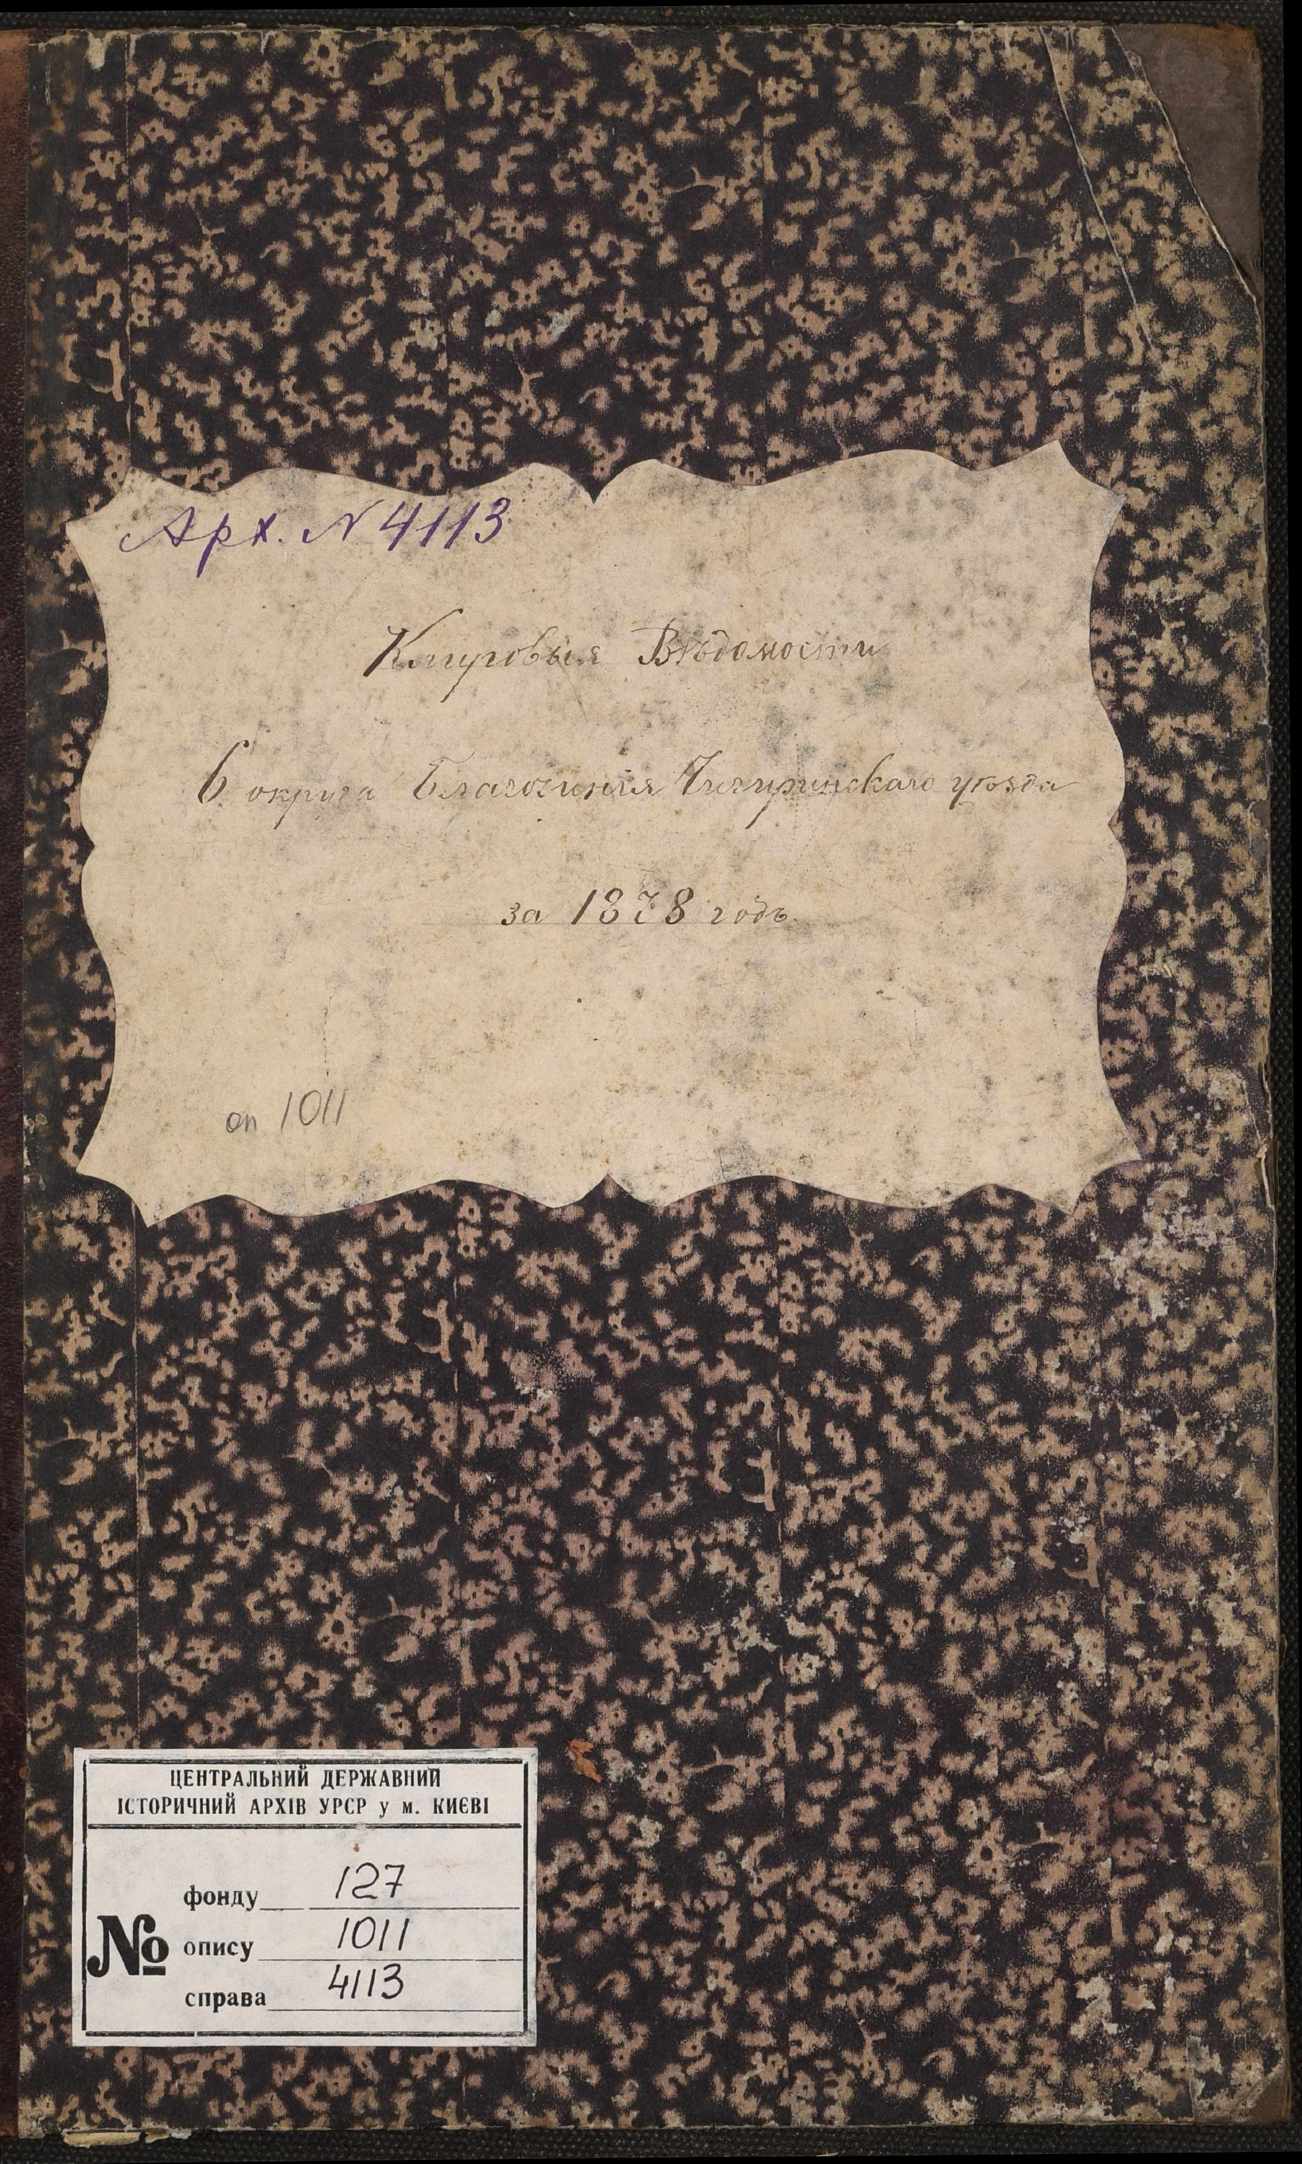 Арх. N 4113
Клировыя Вѣдомости
6 округа Благочинія Чигиринскаго уѣзда
за 1878 годъ.
оп 1011
ЦЕНТРАЛЬНИЙ ДЕРЖАВНИЙ
ІСТОРИЧНИЙ АРХІВ УРСР у м. КИЄВІ
№
фонду 127
опису 1011
справа 4113